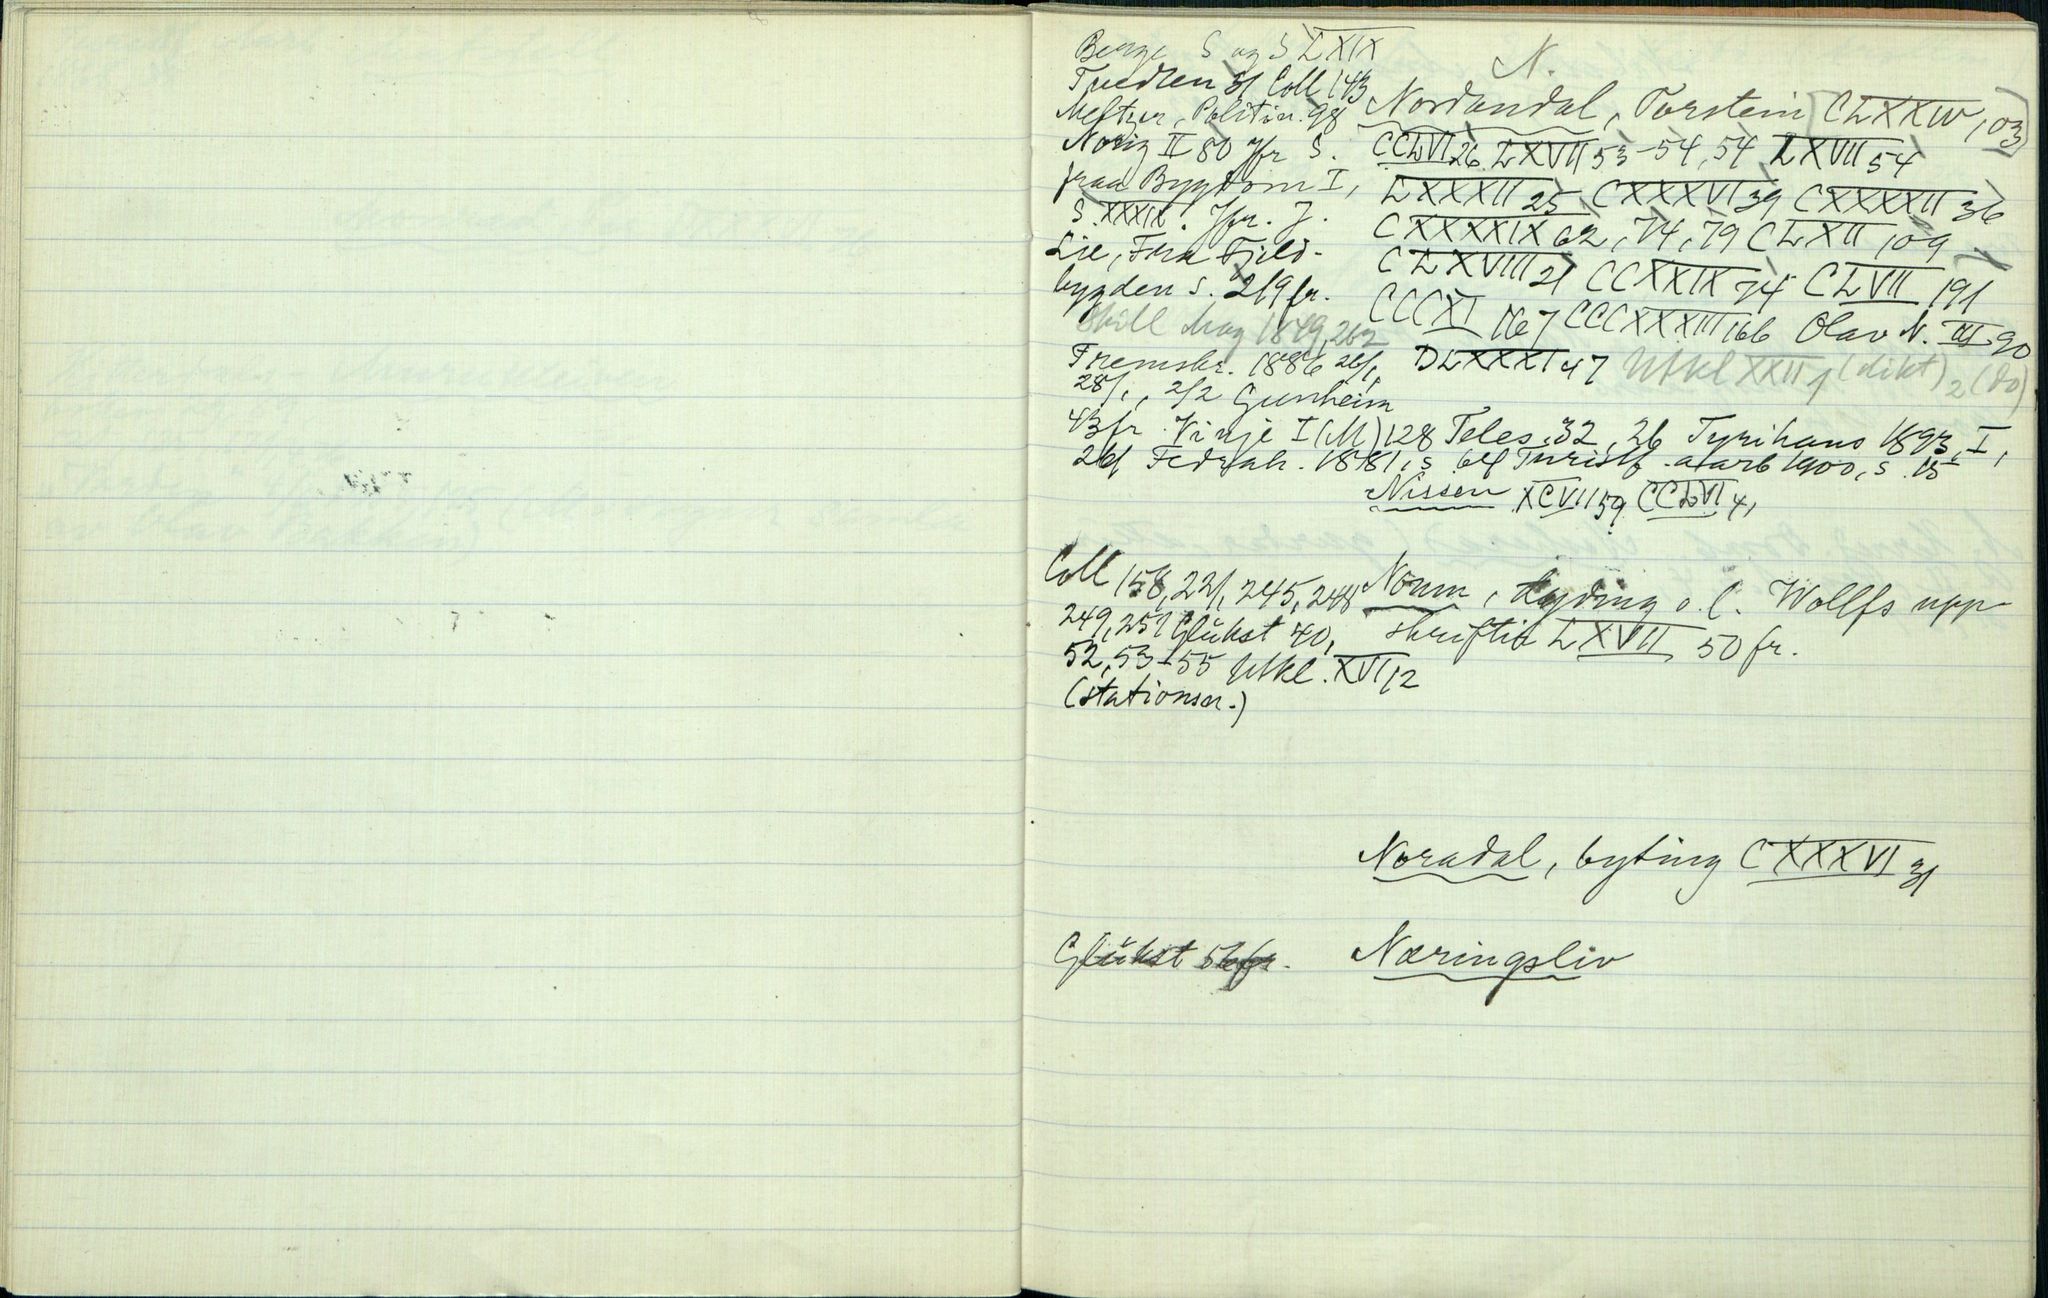 N.
Berge S og S LXIX
Tvedten 31 Coll 143
Meltzer, Politin. 98
Norig II 80 Jfr S.
fraa Bygdom I,
S. XXXIX. Jfr. J.
Lie, Fra Fjeld-
bygden s. 219 fr.
Skill Mag 1849, 262
Fremskr. 1886 26/1,
28/1, 2/2 Gunheim
Nordandal, Torstein [CLXXIV 103]
CCLVI 26 LXVII 53-54, 54 LXVII 54
LXXXII 25 CXXXVI 39 CXXXXII 36
CXXXXIX 62, 74, 79 CLXII 109
CLXVIII 21 CCXXIX 74 CLVII 191
CCCXI 167 CCCXXXIII 166 Olav N. III 90
DLXXXI 47 Utkl XXII 1 (dikt) 2 (do)
43 fr. Vinje I (M) 128 Teles. 32, 26 Tyrihans 1893, I,
26 Fedrah. 1881, s. 64 Turistf. aarb 1900, s. 15
Nissen XCVII 59 CCLVI 41
Coll 158, 221, 245, 248
249, 251 Glükst 40,
52, 53-55 Utkl. XVI 12
(stationer.)
Nomn, tyding o. l. Wollfs upp-
skriftir LXVII 50 fr.
Noradal, byting CXXXVI 31
Glükst 56 fr.
Næringsliv